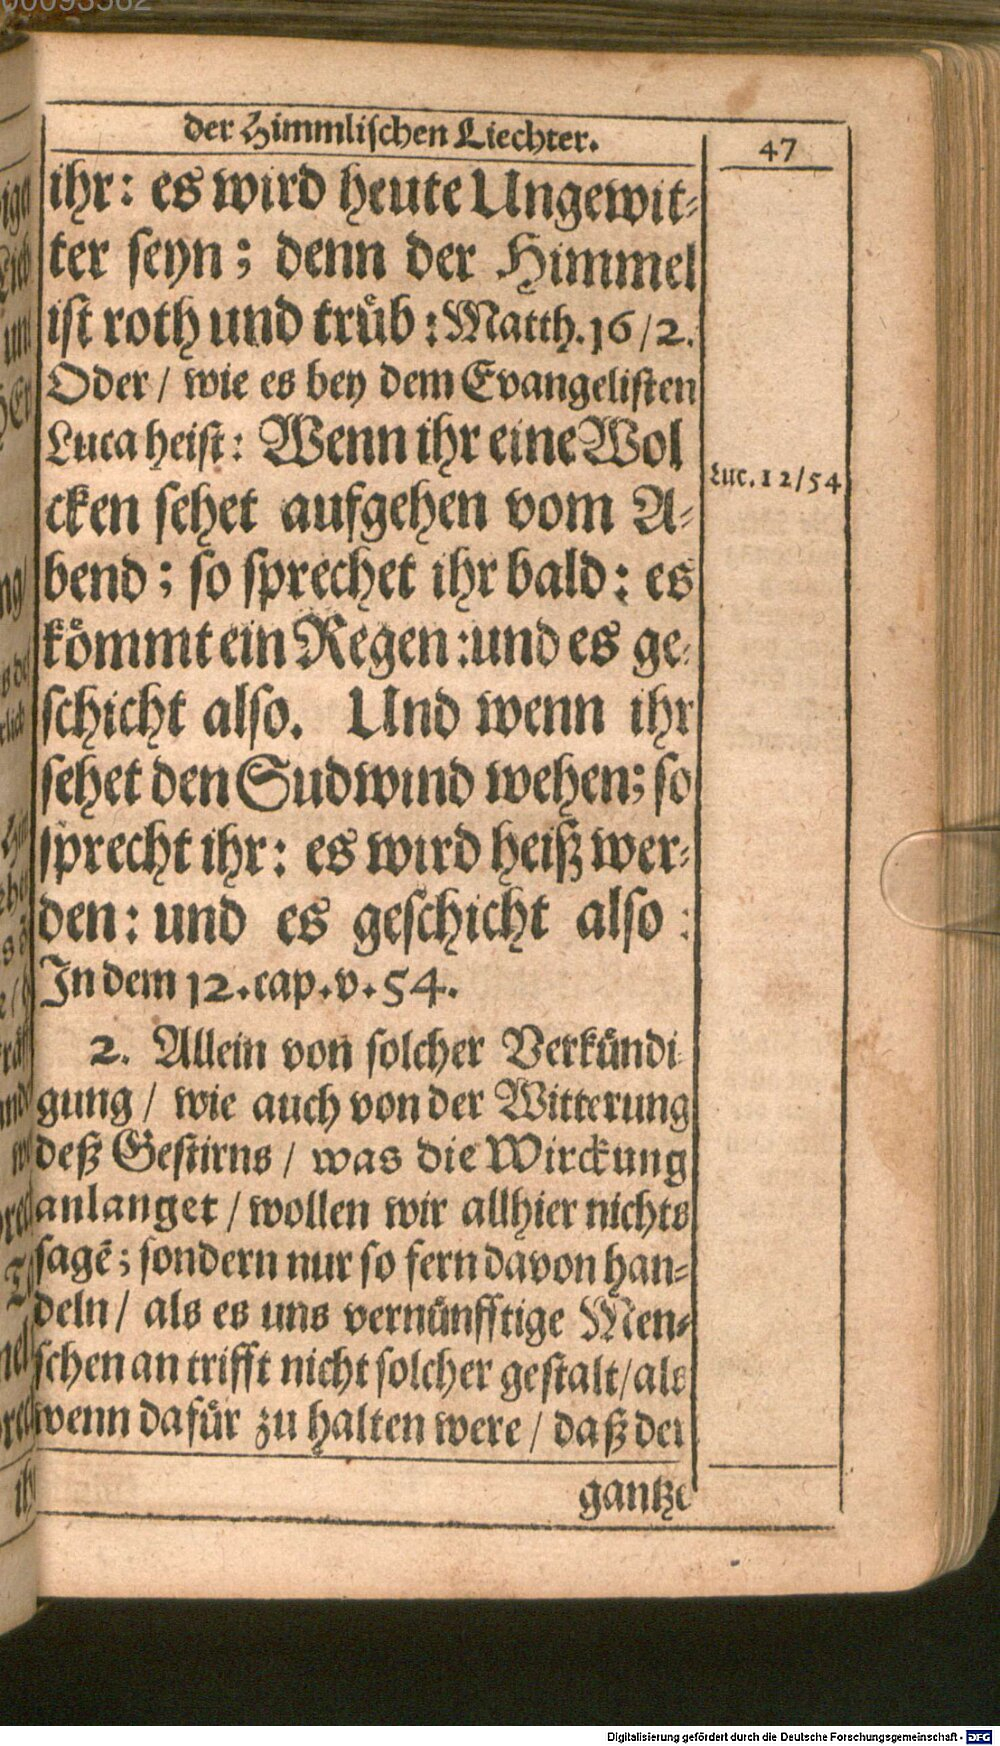 der Himmlischen Liechter.
47
ihr: es wird heute Ungewit-
ter seyn; denn der Himmel
ist roth und trüb: Matth. 16/2.
Oder / wie es bey dem Evangelisten
Luca heist: Wenn ihr eine Wol
cken sehet aufgehen vom A-
bend; so sprechet ihr bald: es
kömmt ein Regen: und es ge-
schicht also. Und wenn ihr
sehet den Sudwind wehen; so
sprecht ihr: es wird heiß wer-
den: und es geschicht also:
In dem 12. cap. v. 54.
Luc. 12/54
2. Allein von solcher Verkündi-
gung / wie auch von der Witterung
deß Gestirns / was die Wirckung
anlanget / wollen wir allhier nichts
sagē; sondern nur so fern davon han-
deln / als es uns vernünfftige Men-
schen an trifft nicht solcher gestalt / als
wenn dafür zu halten were / daß der
gantze
Digitalisierung gefördert durch die Deutsche Forschungsgemeinschaft - DFG